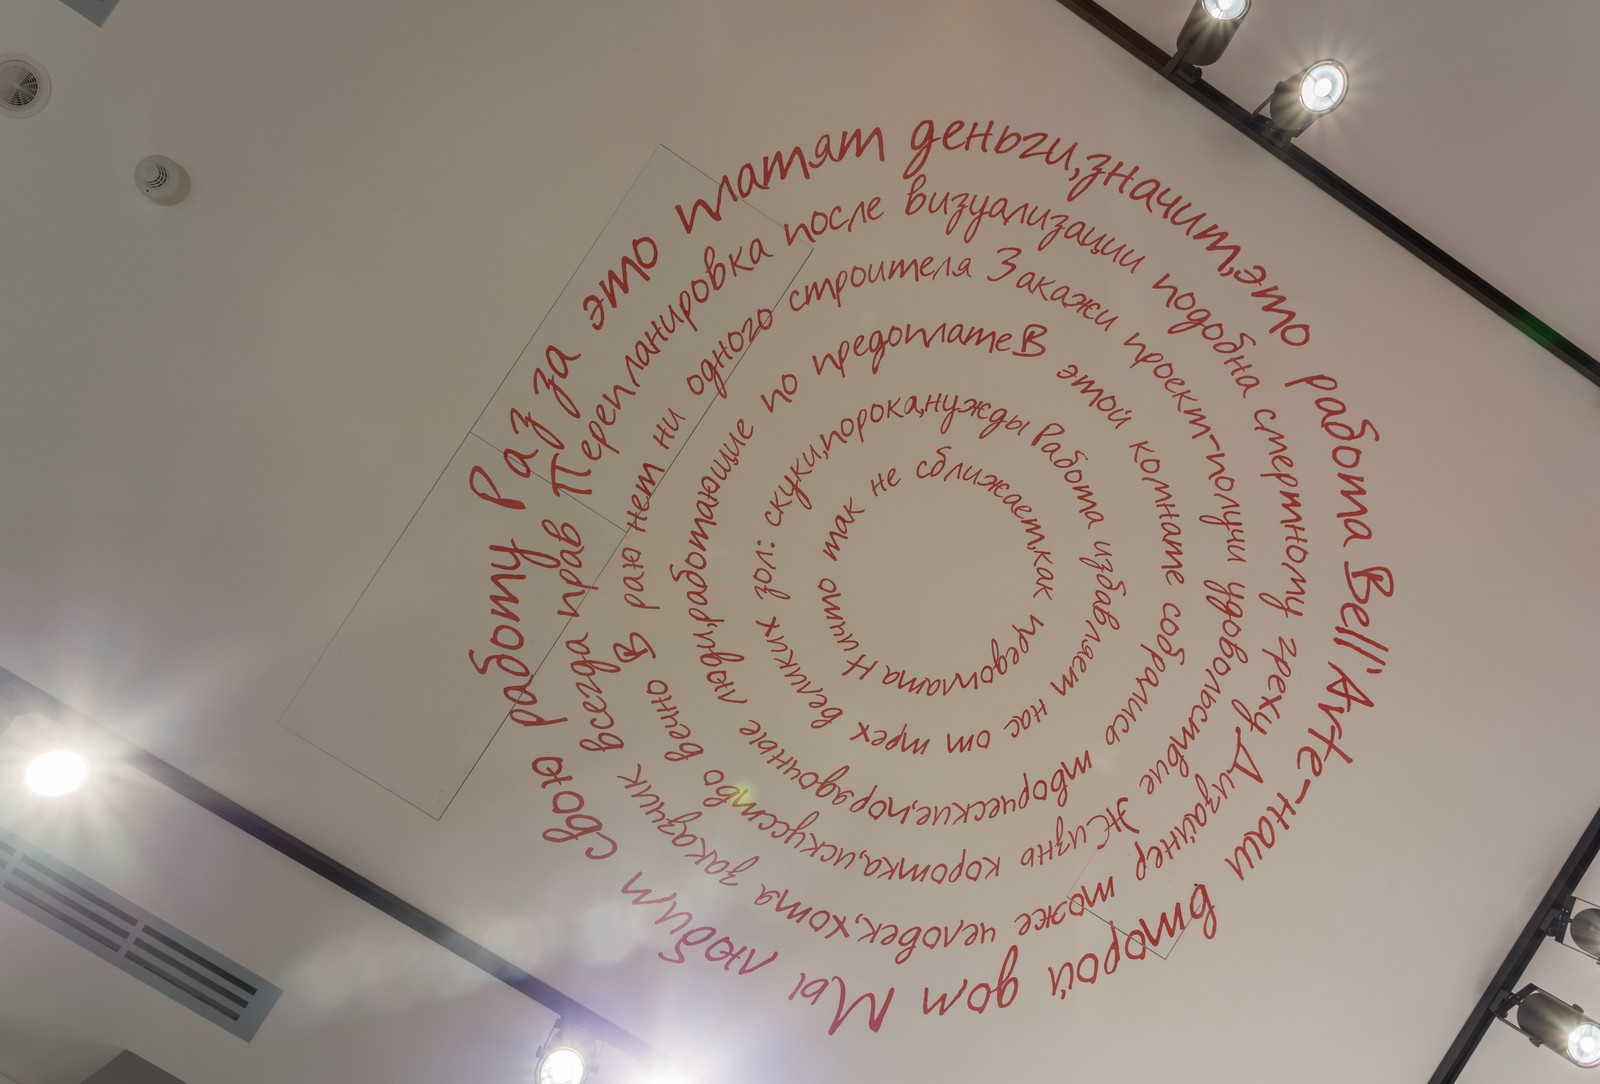 Раз за это платят деньги,значит,это работа Bell'Arte-наш второй дом Мы любим свою работу
Перепланировка после визуализации подобна смертному греху Дизайнер тоже человек,хотя заказчик всегда прав
В раю нет ни одного строителя Закажи проект-получи удовольствие Жизнь коротка,искусство вечно
В этой комнате собрались творческие,порядочные люди,работающие по предоплате
Работа избавляет нас от трех великих зол: скуки,порока,нужды
Ничто так не сближает,как предоплата